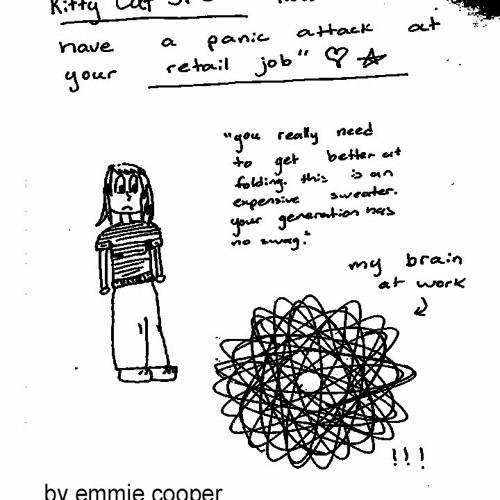 Kitty Cat
have a panic attack at
your retail job" ♡ ☆
"you really need
to get better at
folding. this is an
expensive sweater.
your generation has
no swag."
my brain
at work
!!!
by emmie cooper